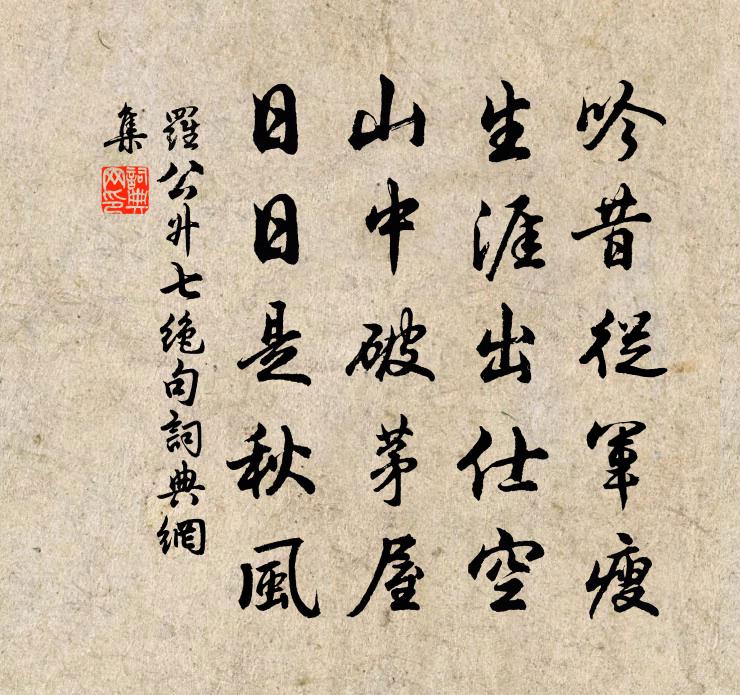 吟昔從軍瘦
生涯出仕空
山中破茅屋
日日是秋風
羅公升七絶句詞典網
集
詞典
网印